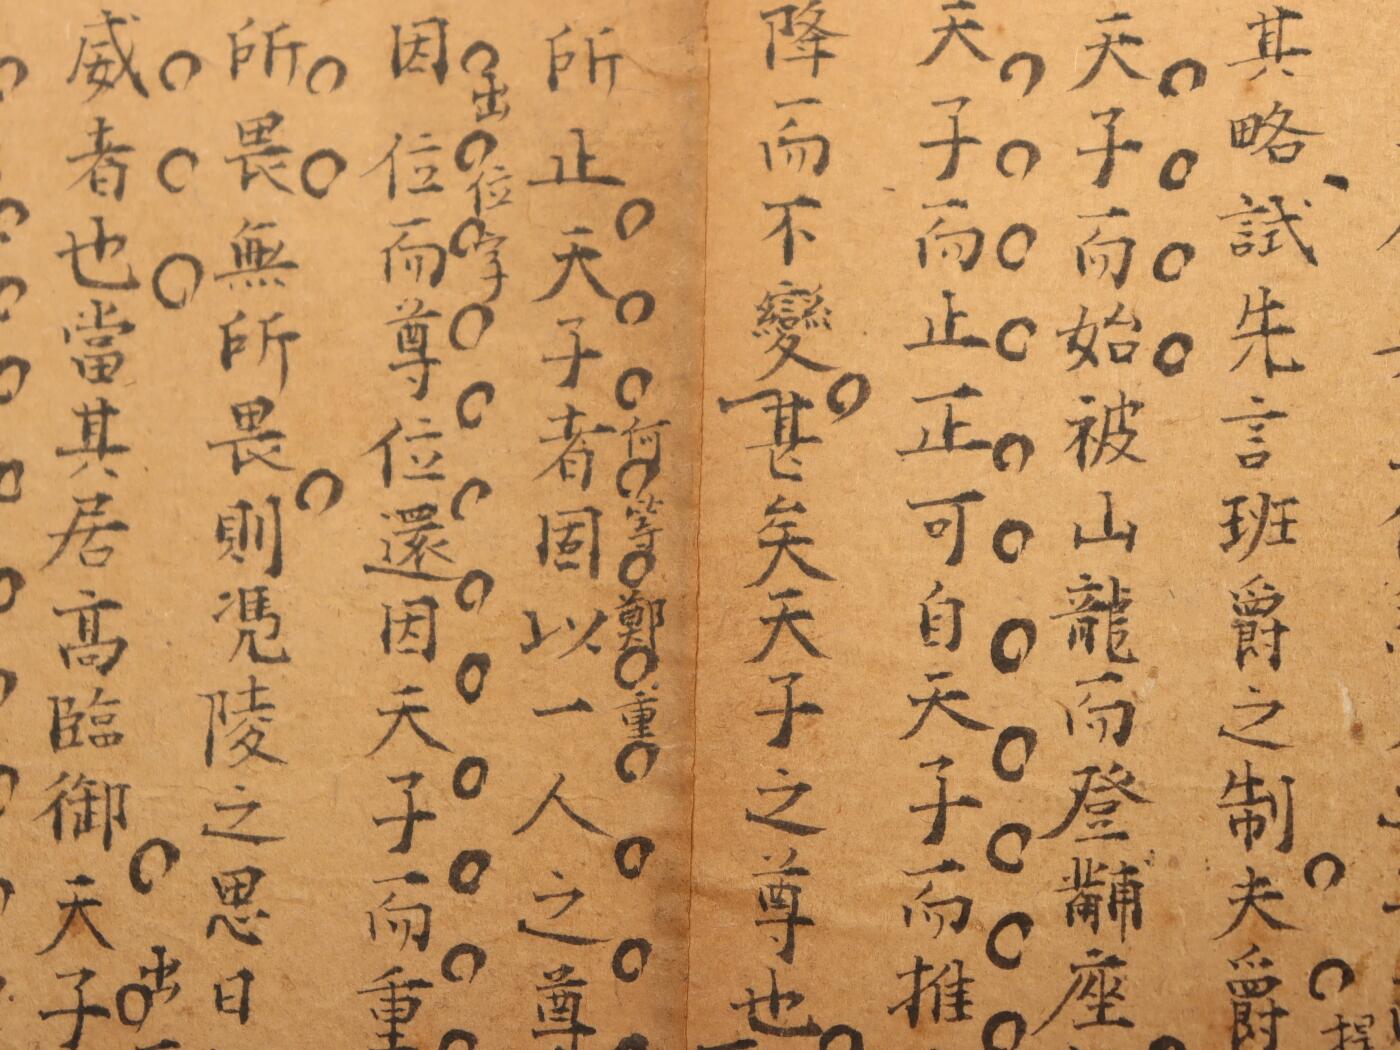 其略試先言班爵之制夫爵
天子而始被山龍而登黼座
天子而止正可自天子而推
降而不變甚矣天子之尊也
何等鄭重
所止天子者固以一人之尊
出位字
因位而尊位還因天子而重
所畏無所畏則憑陵之思日
威者也當其居高臨御天子
出